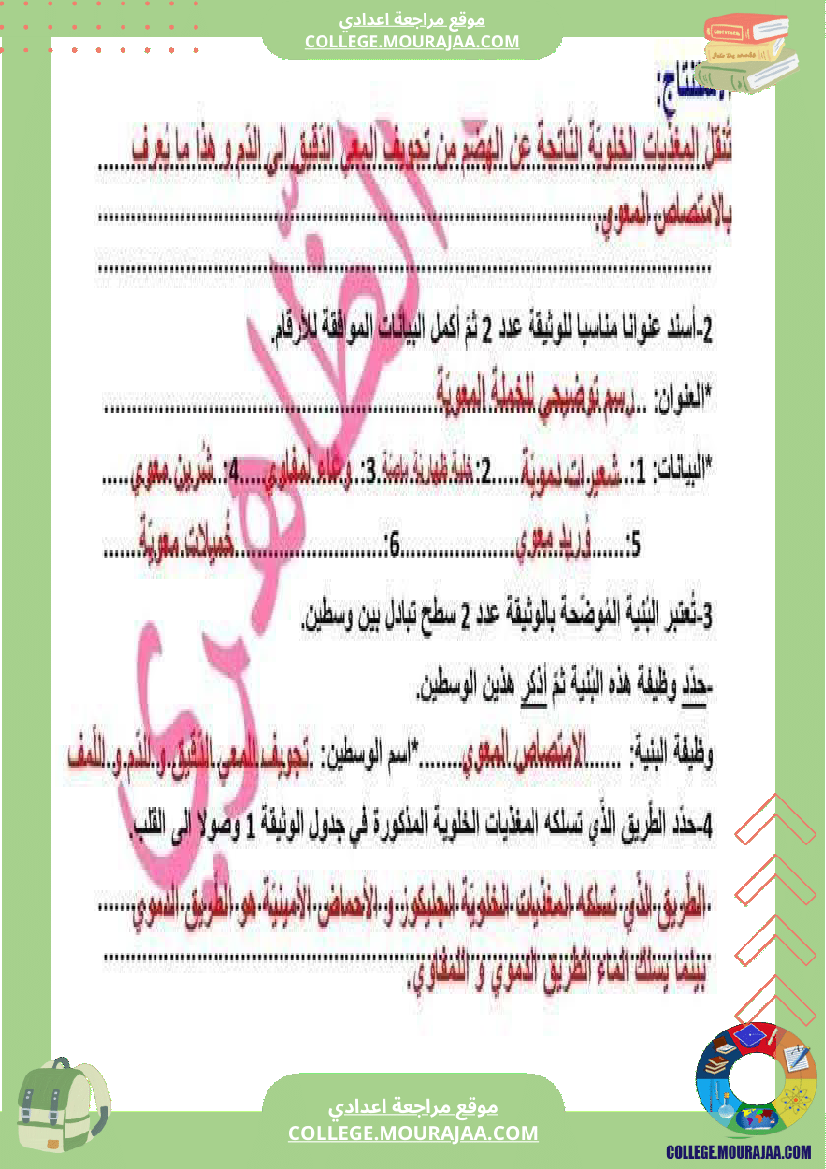 موقع مراجعة اعدادي
COLLEGE.MOURAJAA.COM
تُنقل المغذّيات الخلويّة النّاتجة عن الهضم من تجويف المعي الدّقيق إلى الدّم و هذا ما يُعرف
بالامتصاص المعوي.
2-أسند عنوانا مناسبا للوثيقة عدد 2 ثمّ أكمل البيانات الموافقة للأرقام.
*العنوان: رسم توضيحي للخملة المعويّة
*البيانات: 1: شعيرات دمويّة 2: خلية ظهارية ماصّة 3: وعاء لمفاوي 4: شُرين معوي
5: وُريد معوي 6: خُميلات معويّة
3-تُعتبر البُنية المُوضّحة بالوثيقة عدد 2 سطح تبادل بين وسطين.
-حدّد وظيفة هذه البُنية ثمّ أذكر هذين الوسطين.
وظيفة البنية: الامتصاص المعوي *اسم الوسطين: تجويف المعي الدّقيق و الدّم و اللّمف
4-حدّد الطّريق الذّي تسلكه المغذيات الخلوية المذكورة في جدول الوثيقة 1 وصولا الى القلب.
الطّريق الذّي تسلكه المغذّيات الخلويّة الجليكوز و الأحماض الأمينيّة هو الطّريق الدّموي
بينما يسلك الماء الطّريق الدّموي و اللّمفاوي.
موقع مراجعة اعدادي
COLLEGE.MOURAJAA.COM
COLLEGE.MOURAJAA.COM